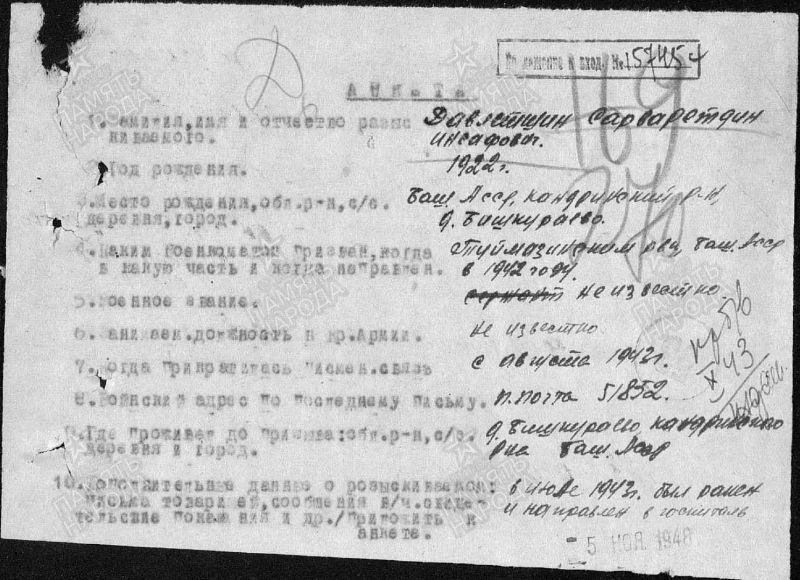 По описке и вход. № 157454
2
169
Анкета
1. Фамилия, имя и отчество разыс Давлетшин Сарваретдин
киваемого. Инсафович.
2. Год рождения. 1922г.
3. Место рождения, обл. р-н, с/с. Баш Асср, Кандринский р-н,
деревня, город. д. Бишкураево.
4. Каким Военкоматом Призван, когда Туймазинским рвк, Баш. Асср
в какую часть и когда направлен. в 1942 году.
5. Военное звание. сержант не известно
6. Занимаем. должность в Кр. Армии. не известно
7. Когда Прикратилась Писмен. связь с августа 1943г.
8. Воинский адрес По последнему письму. п. почта 51852.
9. Где Проживал до Призыва: обл. р-н, с/с. д. Бишкураево, Кандринского
деревня и город. р-на Баш. Асср
10. Дополнительные данные о розыскиваемом: в июле 1943г. был ранен
Письма товарищей, сообщения в/ч. свиде- и направлен в госпиталь
тельские Показания и др. /Приложить к
анкете.
X 43
5 НОЯ 1948
ПАМЯТЬ НАРОДА